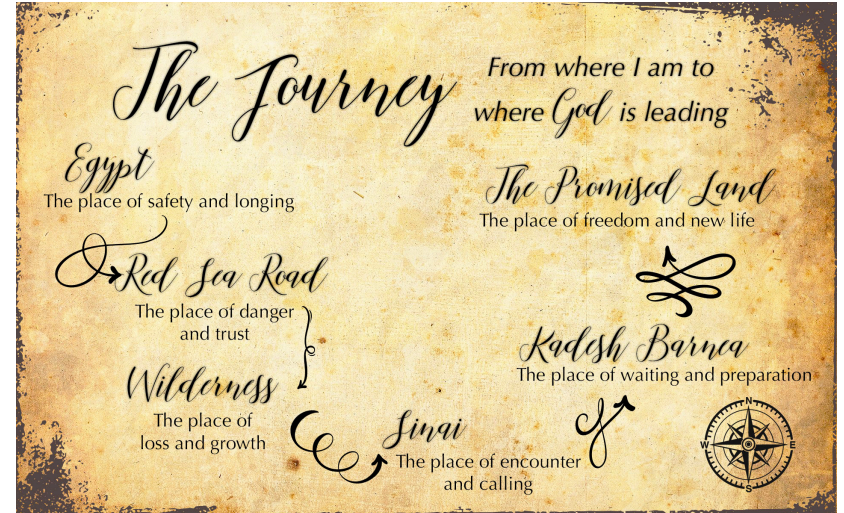 The Journey
From where I am to
where God is leading
Egypt
The place of safety and longing
Red Sea Road
The place of danger
and trust
Wilderness
The place of
loss and growth
Sinai
The place of encounter
and calling
Kadesh Barnea
The place of waiting and preparation
The Promised Land
The place of freedom and new life
N
W E
S